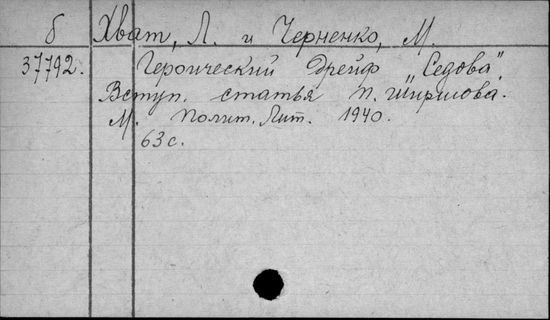 б Хват, Л. и Черненко, М.
37792. Героический дрейф „Седова".
Вступ. статья П. Ширшова.
М. Полит. Лит. 1940.
63 с.